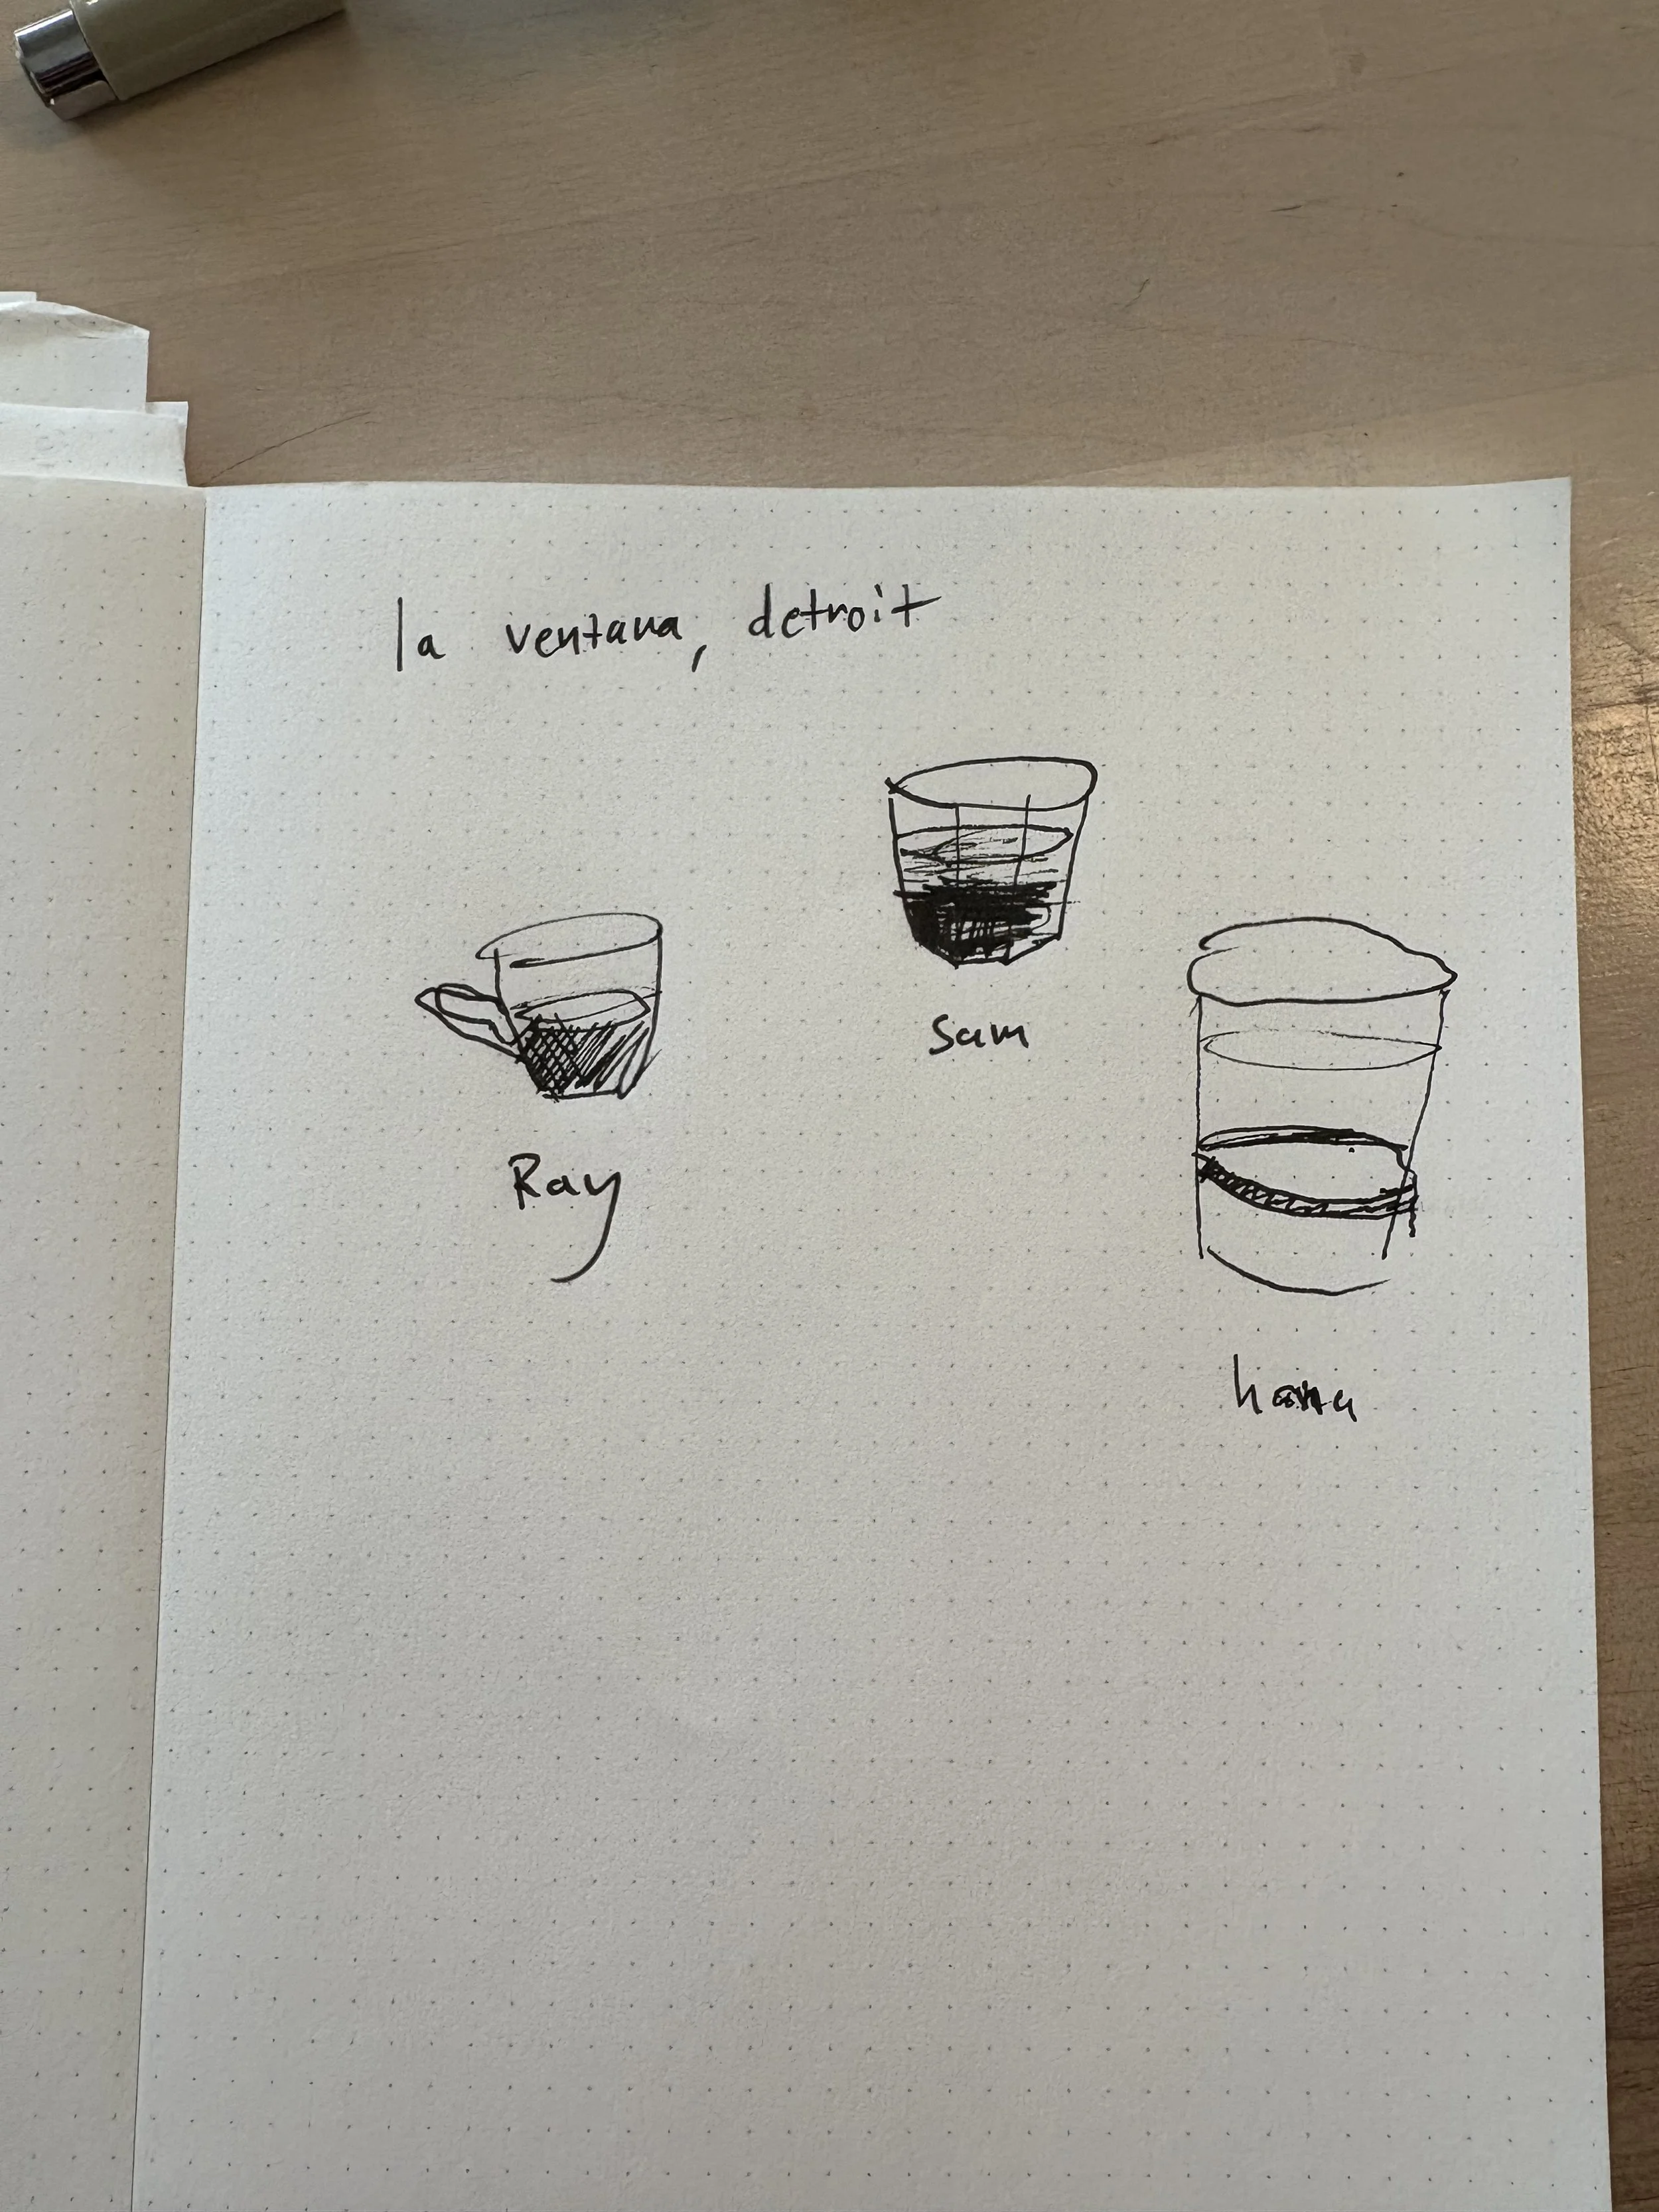 la ventana, detroit
Sam
Ray
hana